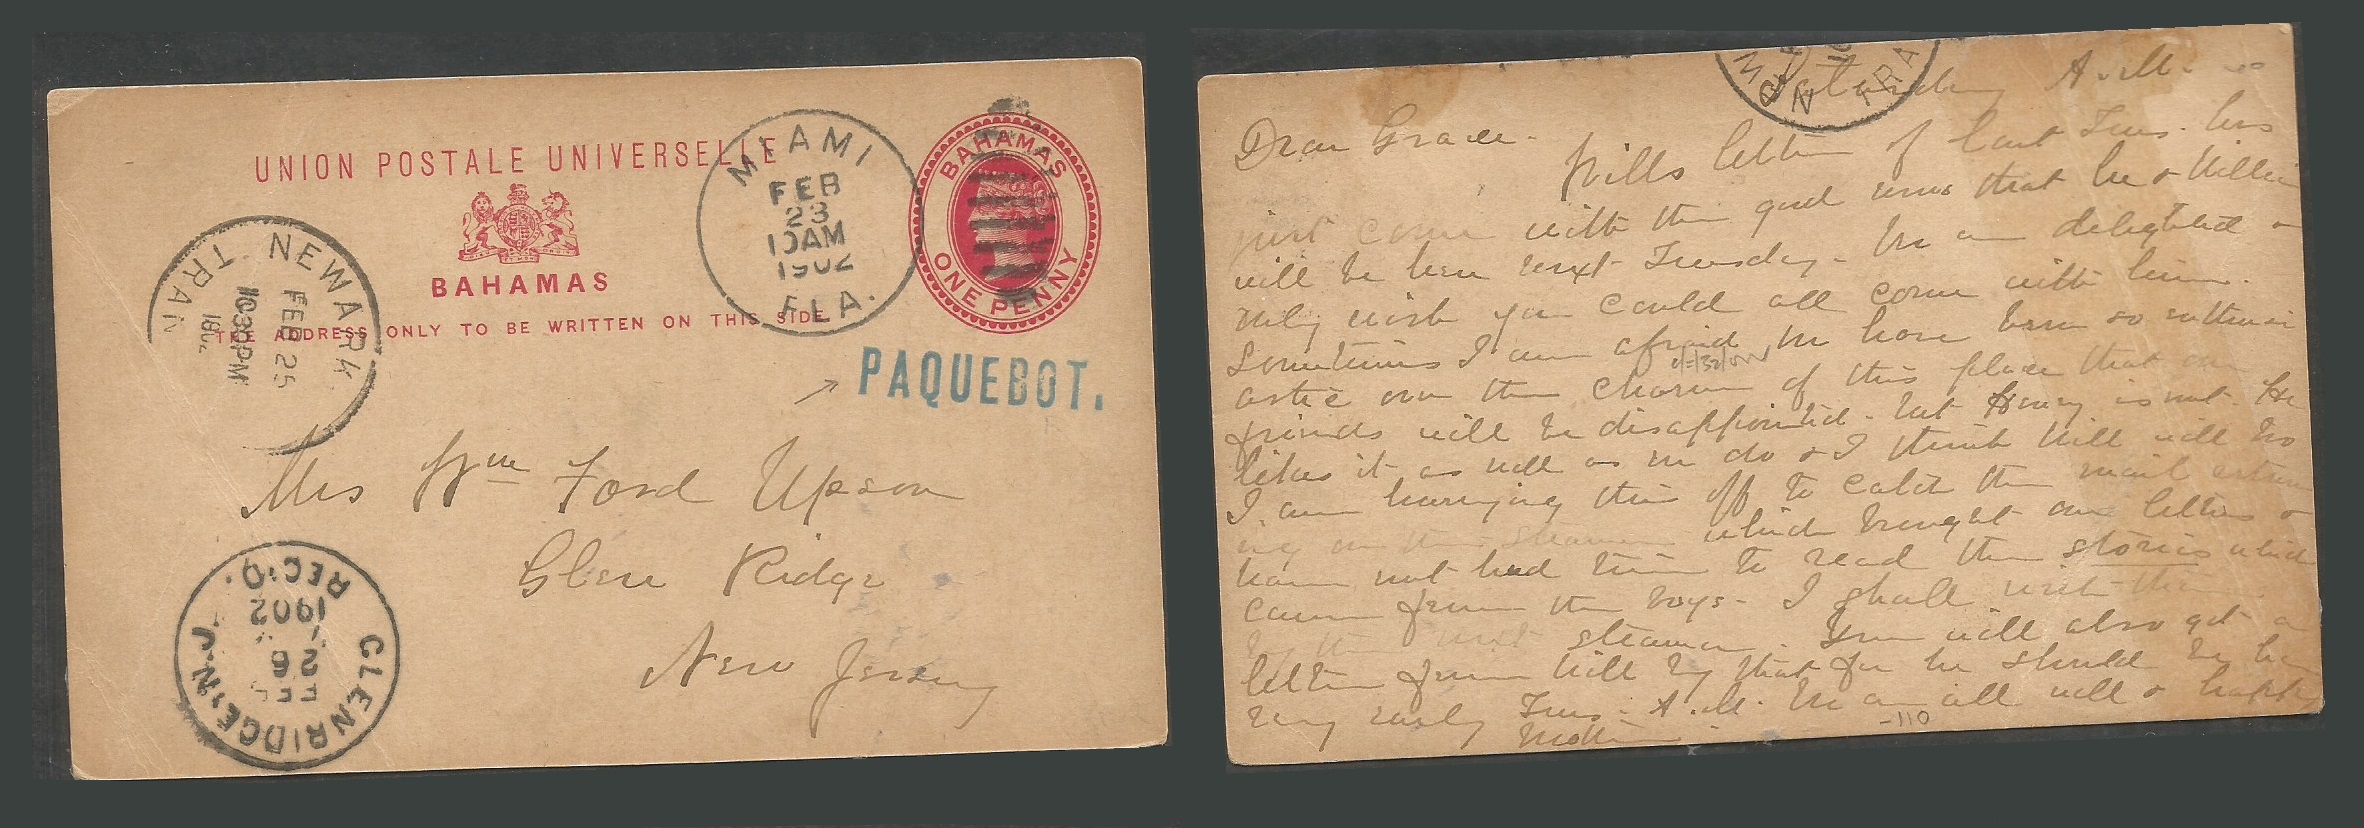 UNION POSTALE UNIVERSELLE
BAHAMAS
THE ADDRESS ONLY TO BE WRITTEN ON THIS SIDE
BAHAMAS
ONE PENNY
MIAMI
FEB
23
10AM
1902
FLA.
PAQUEBOT.
NEWARK
FEB 25
1030PM
TRAN
GLENRIDGE, N.J.
FEB
26
1902
REC'D.
Mrs Wm Ford Upson
Glen Ridge
New Jersey
TRA
A.M.
Dear Grace.
Wills letter of last Tues. has
just come with the good news that he & Willie
will be here next Tuesday. We are delighted &
only wish you could all come with him.
Sometimes I am afraid we have been so enthusi
astic over the charm of this place that our
friends will be disappointed. but Henry is not. He
likes it as well as we do & I think Will will too
I am hurrying this off to catch the mail return
ing on the steamer which brought our letters &
have not had time to read the stories which
came from the boys. I shall write them
by the next steamer. You will also get a
letter from Will by that for he should be here
very early Tues. A.M. We are all well & happy
Mother
-110